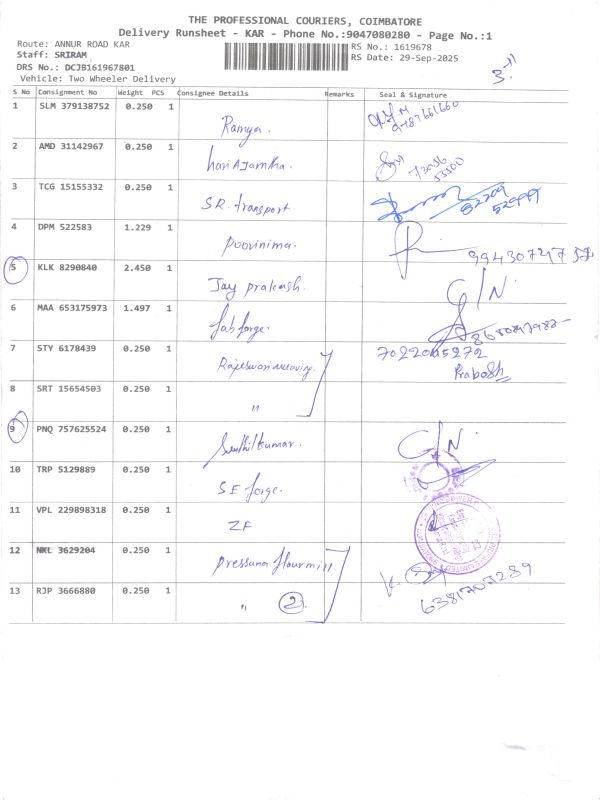 THE PROFESSIONAL COURIERS, COIMBATORE
Delivery Runsheet - KAR - Phone No.:9047080280 - Page No.:1
Route: ANNUR ROAD KAR
RS No.: 1619678
Staff: SRIRAM
RS Date: 29-Sep-2025
DRS No.: DCJB161967801
Vehicle: Two Wheeler Delivery
S No Consignment No Weight PCS Consignee Details Remarks Seal & Signature
1 SLM 379138752 0.250 1
Ramya.
2 AMD 31142967 0.250 1
3 TCG 15155332 0.250 1
S.R. transport
4 DPM 522583 1.229 1
Poornima.
5 KLK 8290840 2.450 1
Jay prakash. C/N.
6 MAA 653175973 1.497 1
forge.
7 STY 6178439 0.250 1
Prabosh
8 SRT 15654503 0.250 1
"
9 PNQ 757625524 0.250 1
Senthil kumar. C/N.
10 TRP 5129889 0.250 1
S E forge.
11 VPL 229898318 0.250 1
ZF
12 NKL 3629204 0.250 1
flour mill
13 RJP 3666880 0.250 1
" 2